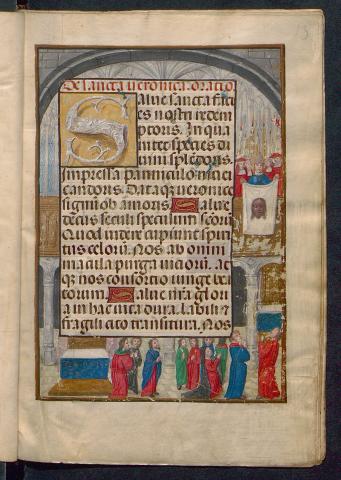 De sancta veronica oratio
Salve sancta faci
es nostri redem
ptoris. In qua
nitet species di
vini splendoris.
Impressa panniculo nivei
candoris. Dataque veronice
signum ob amoris. Salve
decus seculi speculum sctorum
Quod videre cupiunt spiri
tus celorum. Nos ab omni
macula purga viciorum. At
que nos consortio iunge bea
torum. Salve nostra glori
a in hac vita dura. Labili et
fragili cito transitura. Nos